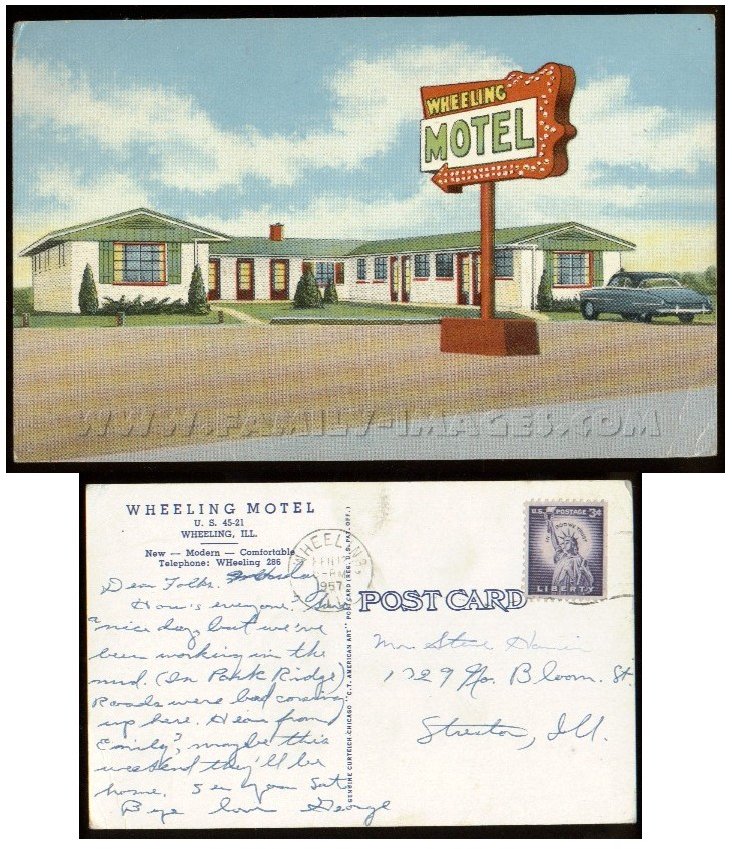 WHEELING
MOTEL
WWW.FAMILY-IMAGES.COM
WHEELING MOTEL
U. S. 45-21
WHEELING, ILL.
New — Modern — Comfortable
Telephone: WHeeling 286
WHEELING
1957
U.S. POSTAGE 3¢
IN GOD WE TRUST
LIBERTY
POST CARD
GENUINE CURTEICH-CHICAGO "C.T. AMERICAN ART" POST CARD (REG. U.S. PAT. OFF.)
Dear Folks,
How's everyone.
nice day, but we've
been working in the
mud. (In Park Ridge)
Roads were bad coming
up here. Hear from
Emily?, maybe this
weekend they'll be
home. See you Sat.
Bye love George
Mr. Steve
1729 No. Bloom. St.
Streator, Ill.